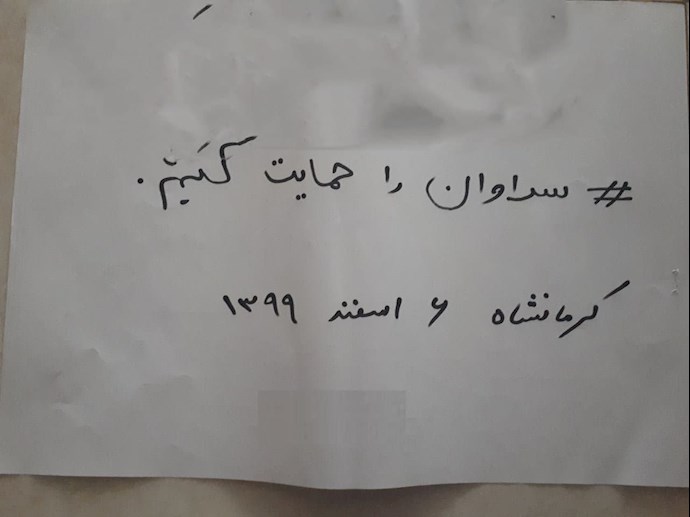 # سراوان را حمایت کنیم.
کرمانشاه ۶ اسفند ۱۳۹۹